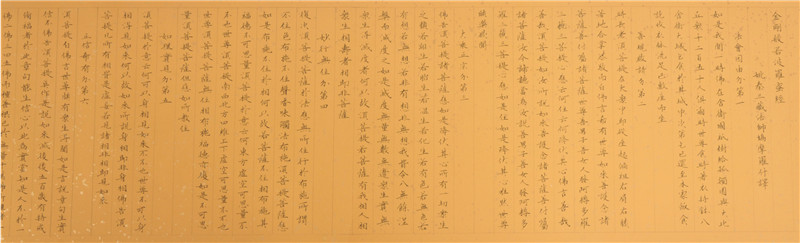 金剛般若波羅蜜經
姚秦三藏法師鳩摩羅什譯
法會因由分第一
如是我聞一時佛在舍衛國祇樹給孤獨園與大比
丘眾千二百五十人俱爾時世尊食時著衣持鉢入
舍衛大城乞食於其城中次第乞已還至本處飯食
訖收衣鉢洗足已敷座而坐
善現啟請分第二
時長老須菩提在大眾中即從座起偏袒右肩右膝
著地合掌恭敬而白佛言希有世尊如來善護念諸
菩薩善付囑諸菩薩世尊善男子善女人發阿耨多羅
三藐三菩提心應云何住云何降伏其心佛言善哉
善哉須菩提如汝所說如來善護念諸菩薩善付囑
諸菩薩汝今諦聽當為汝說善男子善女人發阿耨多
羅三藐三菩提心應如是住如是降伏其心唯然世尊
願樂欲聞
大乘正宗分第三
佛告須菩提諸菩薩摩訶薩應如是降伏其心所有一切眾生
之類若卵生若胎生若濕生若化生若有色若無色若
有想若無想若非有想非無想我皆令入無餘涅
槃而滅度之如是滅度無量無數無邊眾生實無
眾生得滅度者何以故須菩提若菩薩有我相人相
眾生相壽者相即非菩薩
妙行無住分第四
復次須菩提菩薩於法應無所住行於布施所謂
不住色布施不住聲香味觸法布施須菩提菩薩應
如是布施不住於相何以故若菩薩不住相布施其
福德不可思量須菩提於意云何東方虛空可思量不
不也世尊須菩提南西北方四維上下虛空可思量不不也
世尊須菩提菩薩無住相布施福德亦復如是不可思
量須菩提菩薩但應如所教住
如理實見分第五
須菩提於意云何可以身相見如來不不也世尊不可以身
相得見如來何以故如來所說身相即非身相佛告須
菩提凡所有相皆是虛妄若見諸相非相即見如來
正信希有分第六
須菩提白佛言世尊頗有眾生得聞如是言說章句生實
信不佛告須菩提莫作是說如來滅後後五百歲有持戒
修福者於此章句能生信心以此為實當知是人不於一
佛二佛三四五佛而種善根已於無量千萬佛所